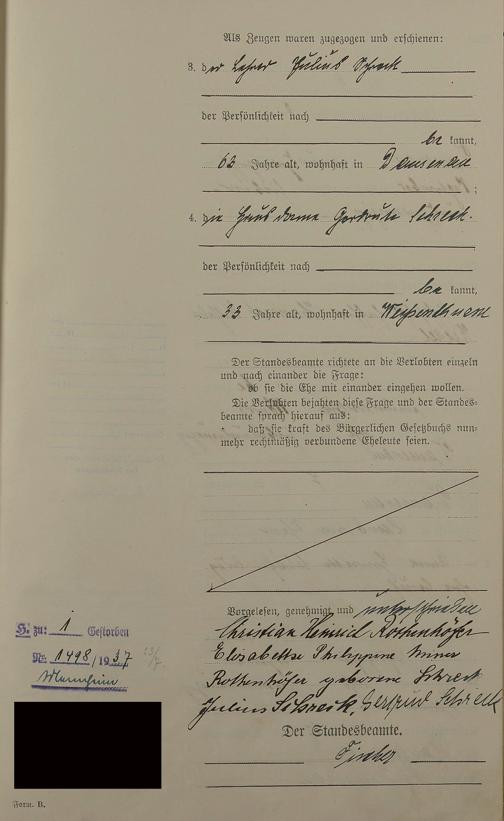 Als Zeugen waren zugezogen und erschienen:
3. der Lehrer Julius Schreck
der Persönlichkeit nach
be kannt,
63 Jahre alt, wohnhaft in Dausenau
;
4. die Hausdame Gertrude Schreck.
der Persönlichkeit nach
be kannt,
33 Jahre alt, wohnhaft in Weißenthurm
Der Standesbeamte richtete an die Verlobten einzeln
und nach einander die Frage:
ob sie die Ehe mit einander eingehen wollen.
Die Verlobten bejahten diese Frage und der Standes=
beamte sprach hierauf aus:
daß sie kraft des Bürgerlichen Gesetzbuchs nun=
mehr rechtmäßig verbundene Eheleute seien.
Vorgelesen, genehmigt und unterschrieben
Christian Heinrich Rothenhöfer
Elisabethe Philippine
Rothenhöfer geborene Schreck
Julius Schreck, Gertrud Schreck
Der Standesbeamte.
Fischer
H. zu: 1 Gestorben
Nr. 1498/1937
Mannheim
Form. B.